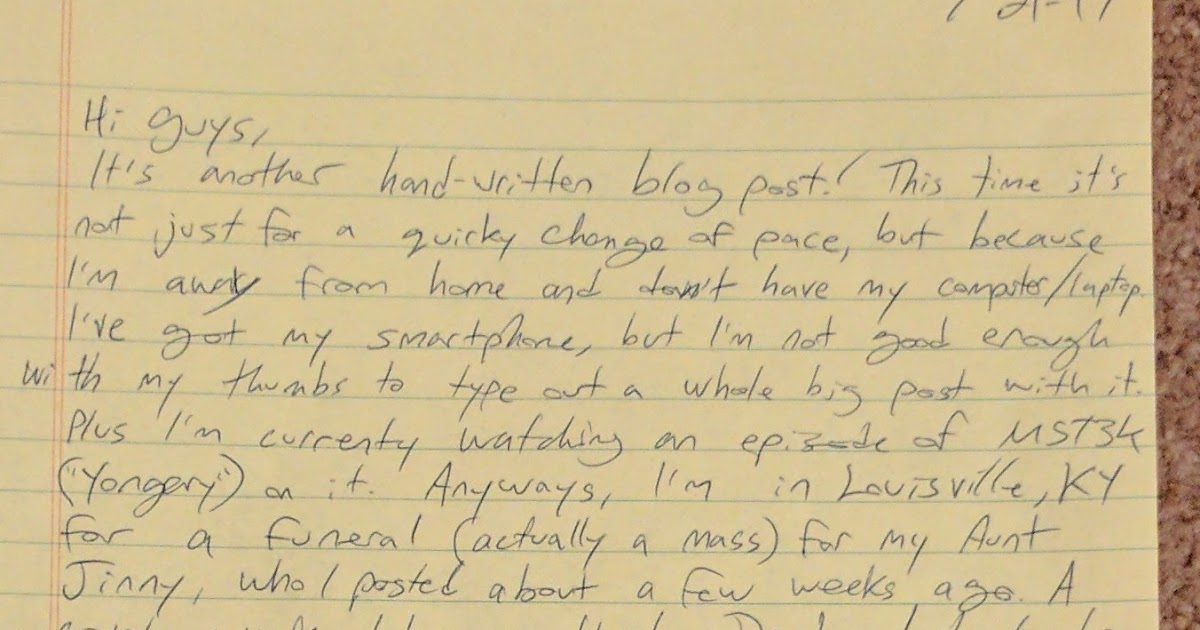 Hi guys,
It's another hand-written blog post! This time it's
not just for a quicky change of pace, but because
I'm away from home and don't have my computer/laptop.
I've got my smartphone, but I'm not good enough
with my thumbs to type out a whole big post with it.
Plus I'm currenty watching an episode of MST3K
("Yongary") on it. Anyways, I'm in Louisville, KY
for a funeral (actually a mass) for my Aunt
Jinny, who I posted about a few weeks ago. A